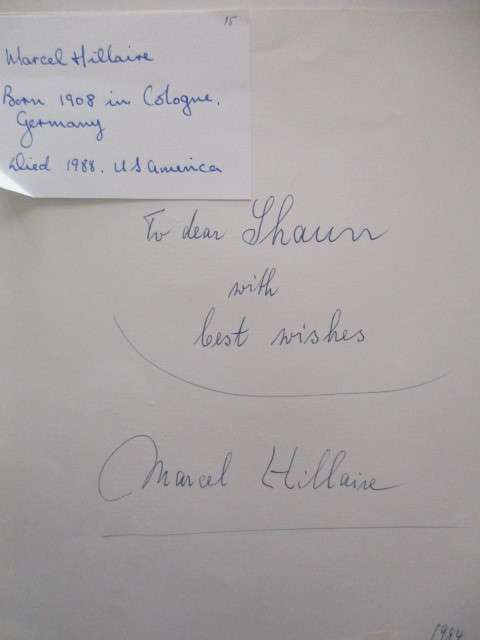 15
Marcel Hillaire
Born 1908 in Cologne,
Germany
Died 1988, US America
To dear Shaun
with
best wishes
Marcel Hillaire
1984